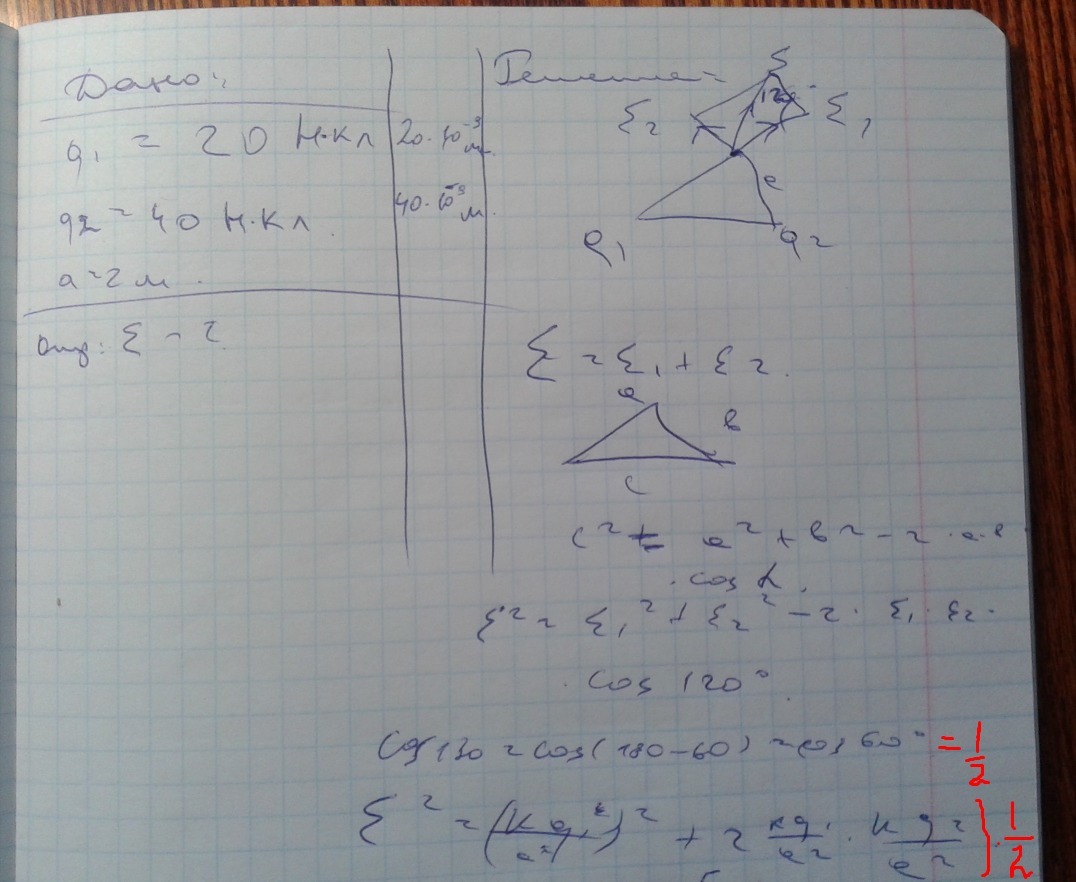 Дано:
q₁ = 20 Н·кл 20·10⁻⁹
q₂ = 40 Н·кл. 40·10⁻⁹ м.
a = 2 м.
Опр: Σ - ?
Решение:
S
120°
Σ₂ Σ₁
a
q₁ q₂
Σ = Σ₁ + Σ₂.
a
в
c
c² = a² + в² - 2·a·в
·cos α.
Σ² = Σ₁² + Σ₂² - 2· Σ₁· Σ₂·
·cos 120°.
cos 130 = cos(180-60) = cos 60° = 1/2
Σ² = (Kq₁/a²)² + 2 Kq₁/a² · Kq₂/a² } · 1/2